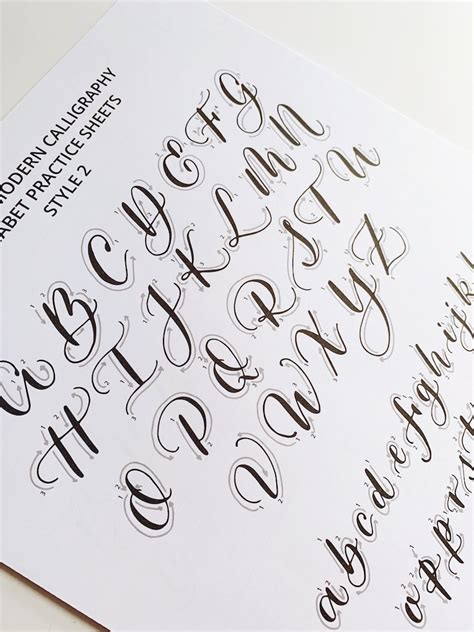 MODERN CALLIGRAPHY
ABET PRACTICE SHEETS
STYLE 2
A B C D E F G
H I J K L M N
O P Q R S T U
V W X Y Z
a b c d e f g h i j k l
o p